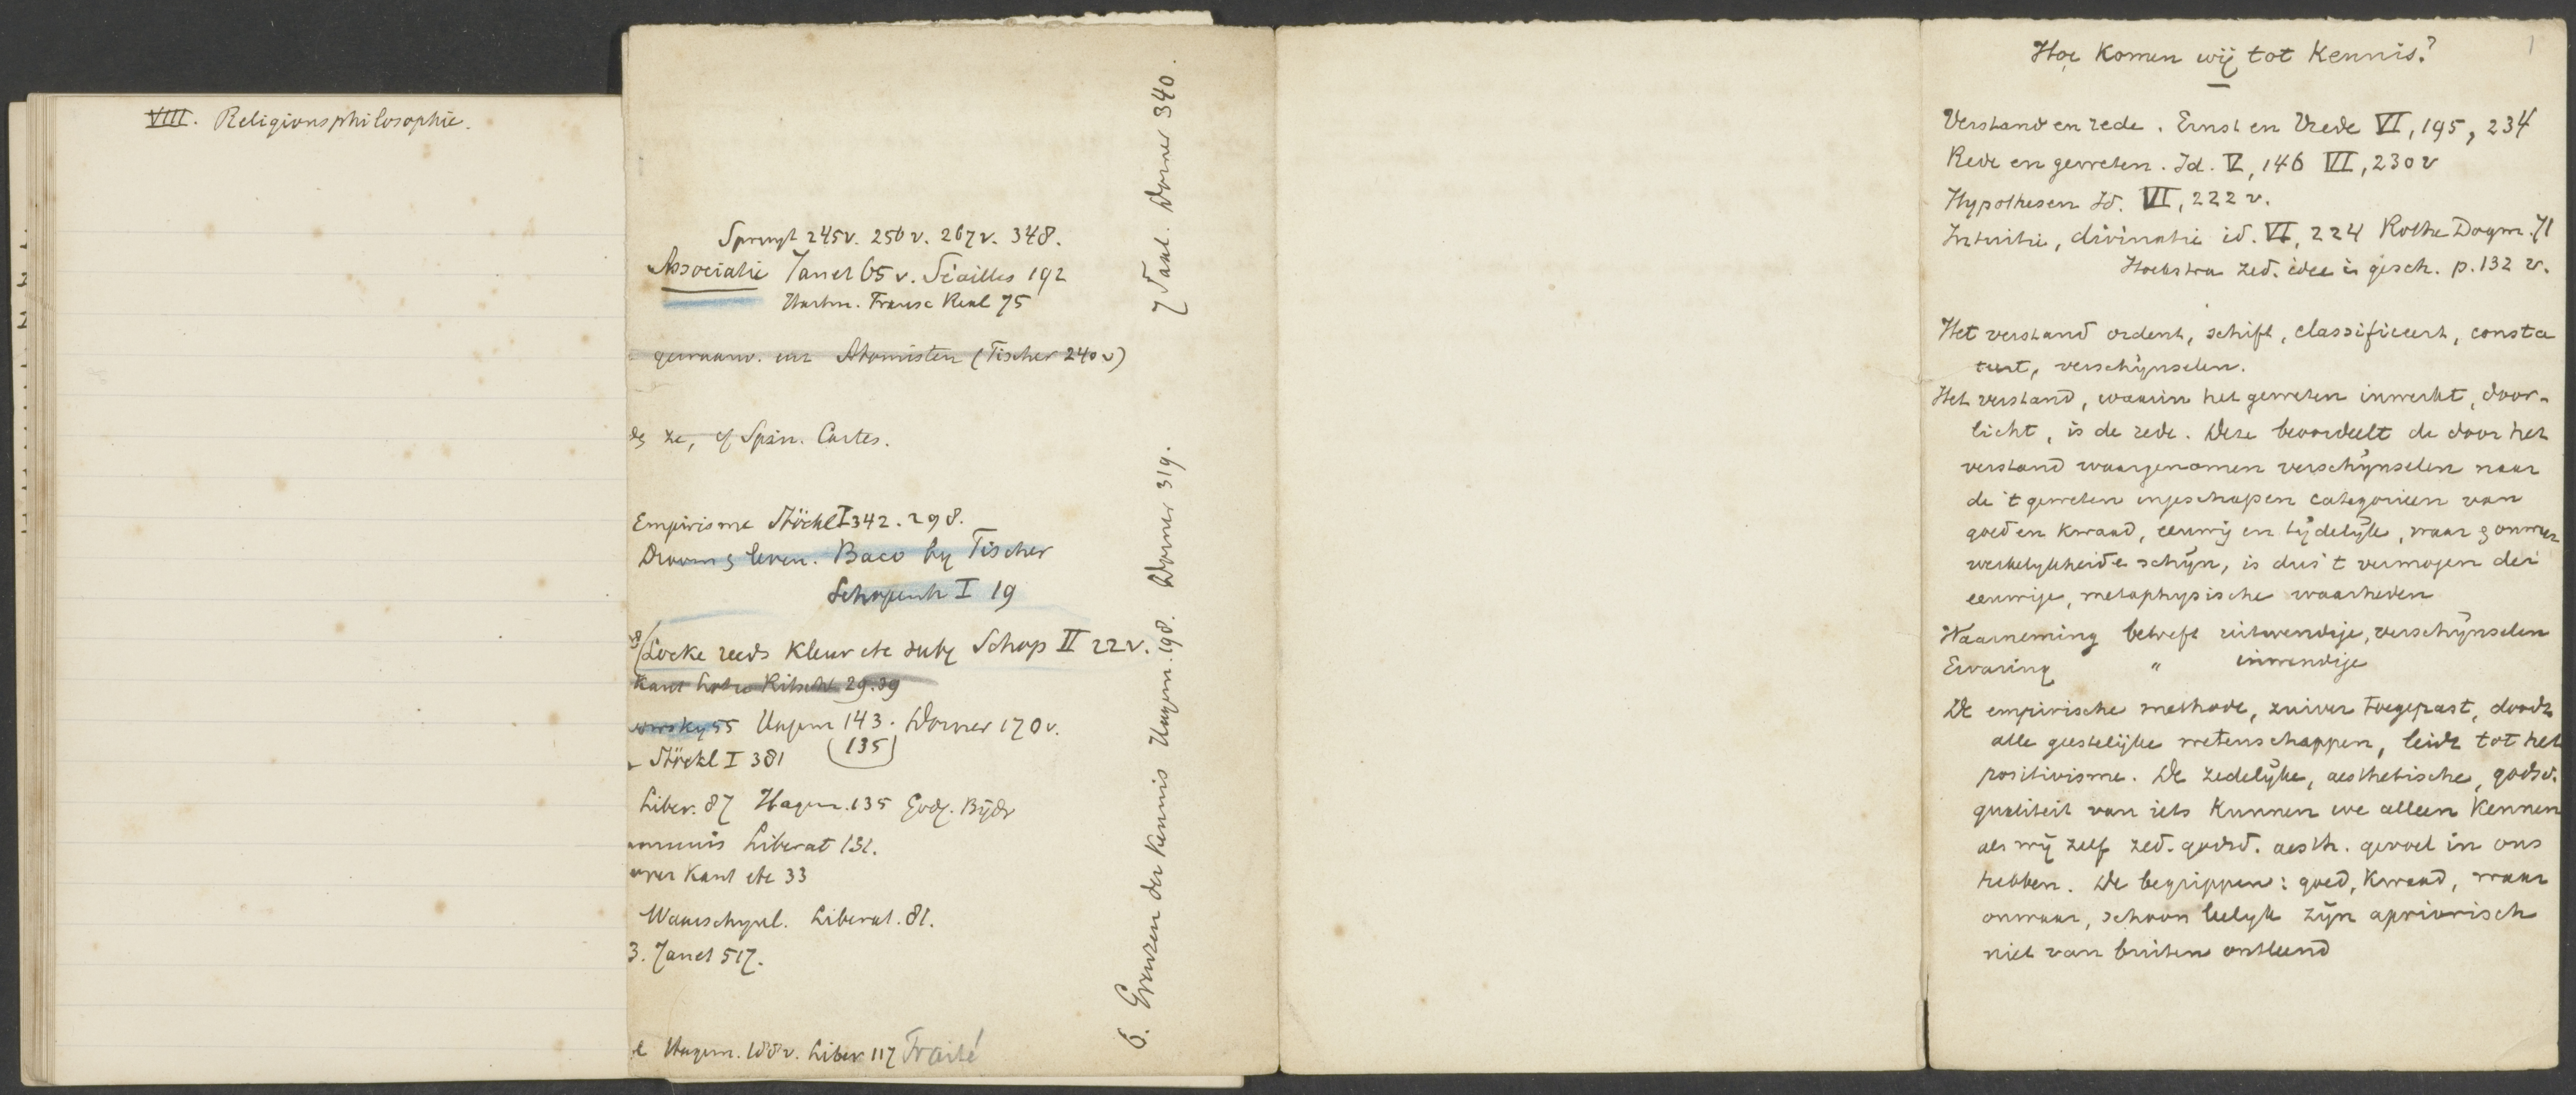 VIII. Religionsphilosophie.
Spruyt 245v. 256v. 267v. 348.
Associatie Janet 65v. Séailles 192
Hartm. Transc Real 75
gewaarw. en Atomisten (Fischer 240v)
ze, cf Spin. Cartes.
Empirisme Stöckl I 342. 298.
Droom & leven. Baco by Fischer
Schopenh I 19
Locke reeds kleur etc subj Schop II 22v.
Kant Lotze Ritschl 29.39
55 Hagem 143. Dorner 170v.
(135)
Stöckl I 381
Liber. 87 Hagem. 135 Godg. Bijdr
Liberat 131.
over Kant etc 33
Waarschynl. Liberat. 81.
3. Janet 517.
Hagem. 188v. Liber 117 Traité
6. Grenzen der Kennis Hagem. 198. Dorner 319.
7 Taal. Dorner 340.
1
Hoe komen wij tot kennis?
Verstand en rede. Ernst en Vrede VI, 195, 234
Rede en geweten. Id. V, 146 VII, 230v
Hypothesen Id. VI, 222 v.
Intuitie, divinatie id. VI, 224 Rothe Dogm. 71
Hoekstra zed. idee in gesch. p. 132 v.
Het verstand ordent, schift, classificeert, consta
teert, verschijnselen.
Het verstand, waarin het geweten inwerkt, door-
licht, is de rede. Deze beoordeelt de door het
verstand waargenomen verschijnselen naar
de 't geweten ingeschapen categorieen van
goed en kwaad, eeuwig en tijdelijk, waar & onwaar
werkelykheid & schijn, is dus 't vermogen der
eeuwige, metaphysische waarheden
Waarneming betreft uitwendige, verschijnselen
Ervaring " inwendige
De empirische methode, zuiver toegepast, doodt
alle geestelijke wetenschappen, leidt tot het
positivisme. De zedelijke, aesthetische, godsd.
qualiteit van iets kunnen we alleen kennen
als wij zelf zed. godsd. aesth. gevoel in ons
hebben. De begrippen: goed, kwaad, waar
onwaar, schoon lelyk zijn apriorisch
niet van buiten ontleend